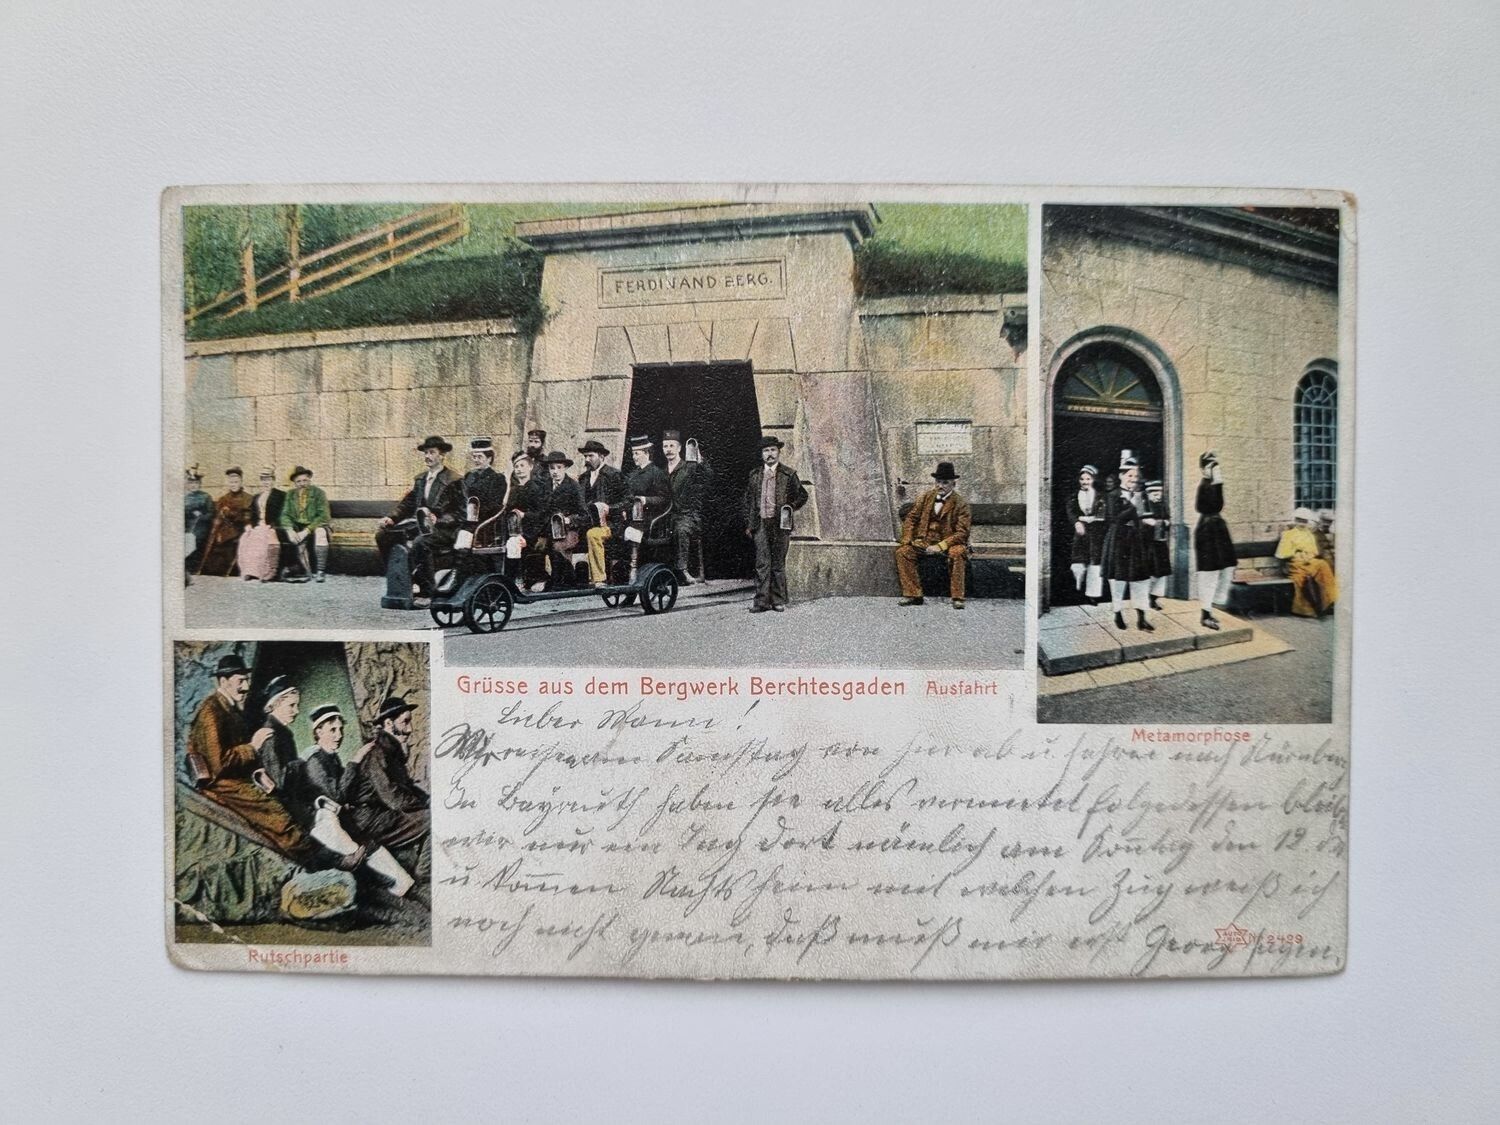 FERDINAND BERG.
Grüsse aus dem Bergwerk Berchtesgaden Ausfahrt
Metamorphose
Lieber Mann!
Wir reisen am Samstag von hier ab u. fahren nach Nürnberg
In Bayreuth haben sie alles vermietet folgedessen bleiben
wir nur ein Tag dort nämlich am Sonntag den 12. ds
u kommen Nachts heim mit welchen Zug weiß ich
noch nicht genau, daß muß mir erst Georg sagen.
Rutschpartie
No 2499